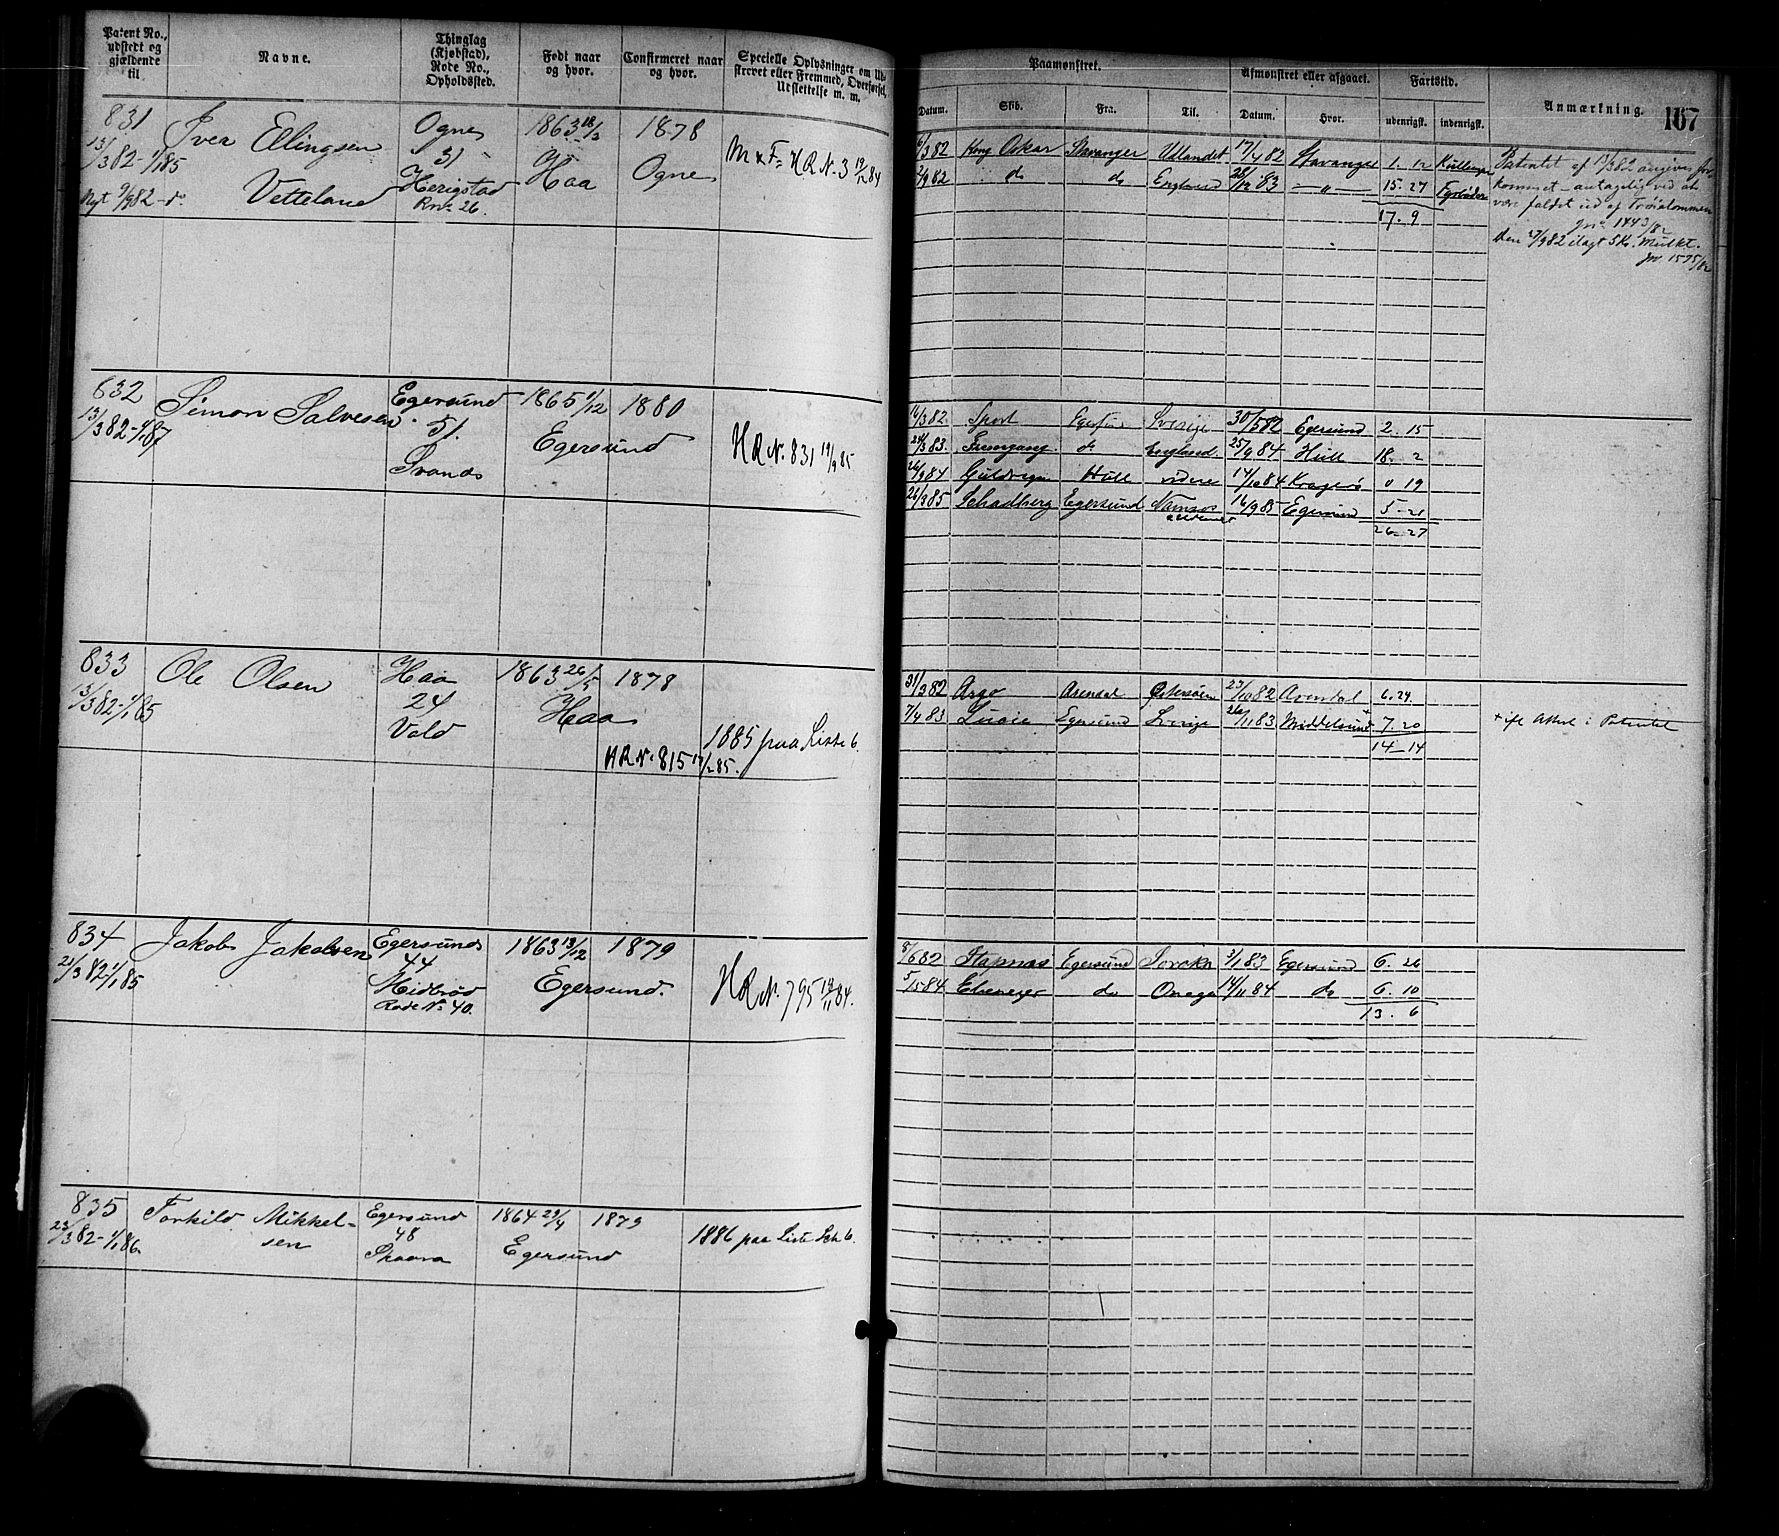 Patent No., udstedt og gjældende til
Navne.
Thinglag (Kjøbstad), Rode No., Opholdssted.
Født naar og hvor.
Confirmeret naar og hvor.
Specielle Oplysninger om Udskrevet eller Fremmed, Overførsel, Udslettelse m. m.
Paamønstret.
Afmønstret eller afgaaet.
Fartstid.
Anmærkning.
167
Datum.
Skib.
Fra.
Til.
Datum.
Hvor.
udenrigsk.
indenrigsk.
831
13/3 82 - 1/1 85
Nyt 9/9 82 - do
Iver Ellingsen
Vetteland
Ogne
31
Herigstad
Rno 26.
1863 18/3
Haa
1878
Ogne
M & F = HR N. 3 19/12 84
6/3 82 Kong Oskar Stavanger Udlandet 17/4 82 Stavanger 1. 12
2/9 82 do do England 28/12 83 — " — 15. 27
17. 9
Patentet af 13/3 82 angives for-
kommet - antagelig ved at
være faldet ud af Trøielommen
Jno 1443/82
Den 27/9 82 ilagt 5 Kr. Mulkt.
Jno. 1575/82
832
13/3 82 - 1/1 87
Simon Salvesen
Egersund
51.
Svanes
1865 1/12
Egersund
1880
HR N. 831 19/9 85
16/3 82. Sport Egersund Sverige 30/5 82 Egersund 2. 15
24/3 83. Fremgang do England 25/9 84 Hull 18. 2
26/9 84 Guldregn Hull videre 14/10 84 Kragerø 0 19
26/3 85 Schadberg Egersund Namsos 16/9 85 Egersund 5 - 21
26 - 27
833
13/3 82 - 1/1 85
Ole Olsen
Haa
24
Vold
1863 26/5
Haa
1878
1885 paa Liste 6.
HR N. 815 17/2 85.
31/3 82 Argo Arendal Østersøen 27/10 82 Arendal 6. 24.
7/4 83 Egersund Sverige 26/11 83 Middelsund + 7. 20
14 - 14
+ ift Attest i Patentet
834
21/3 82 - 1/1 85
Jakob Jakobsen
Egersund
44
Midbrød
Rode No 40.
1863 13/12
Egersund.
1879
HR N. 795 19/11 84.
8/6 82 Stapnas Egersund Soroka 3/1 83 Egersund 6. 26
5/5 84 Ebenezer do Onega 14/11 84 do 6. 10
13. 6
835
23/3 82 - 1/1 86.
Torkild Mikkel-
sen
Egersund
48
Skaara
1864 29/4
Egersund
1879
1886 paa Liste Sch 6.